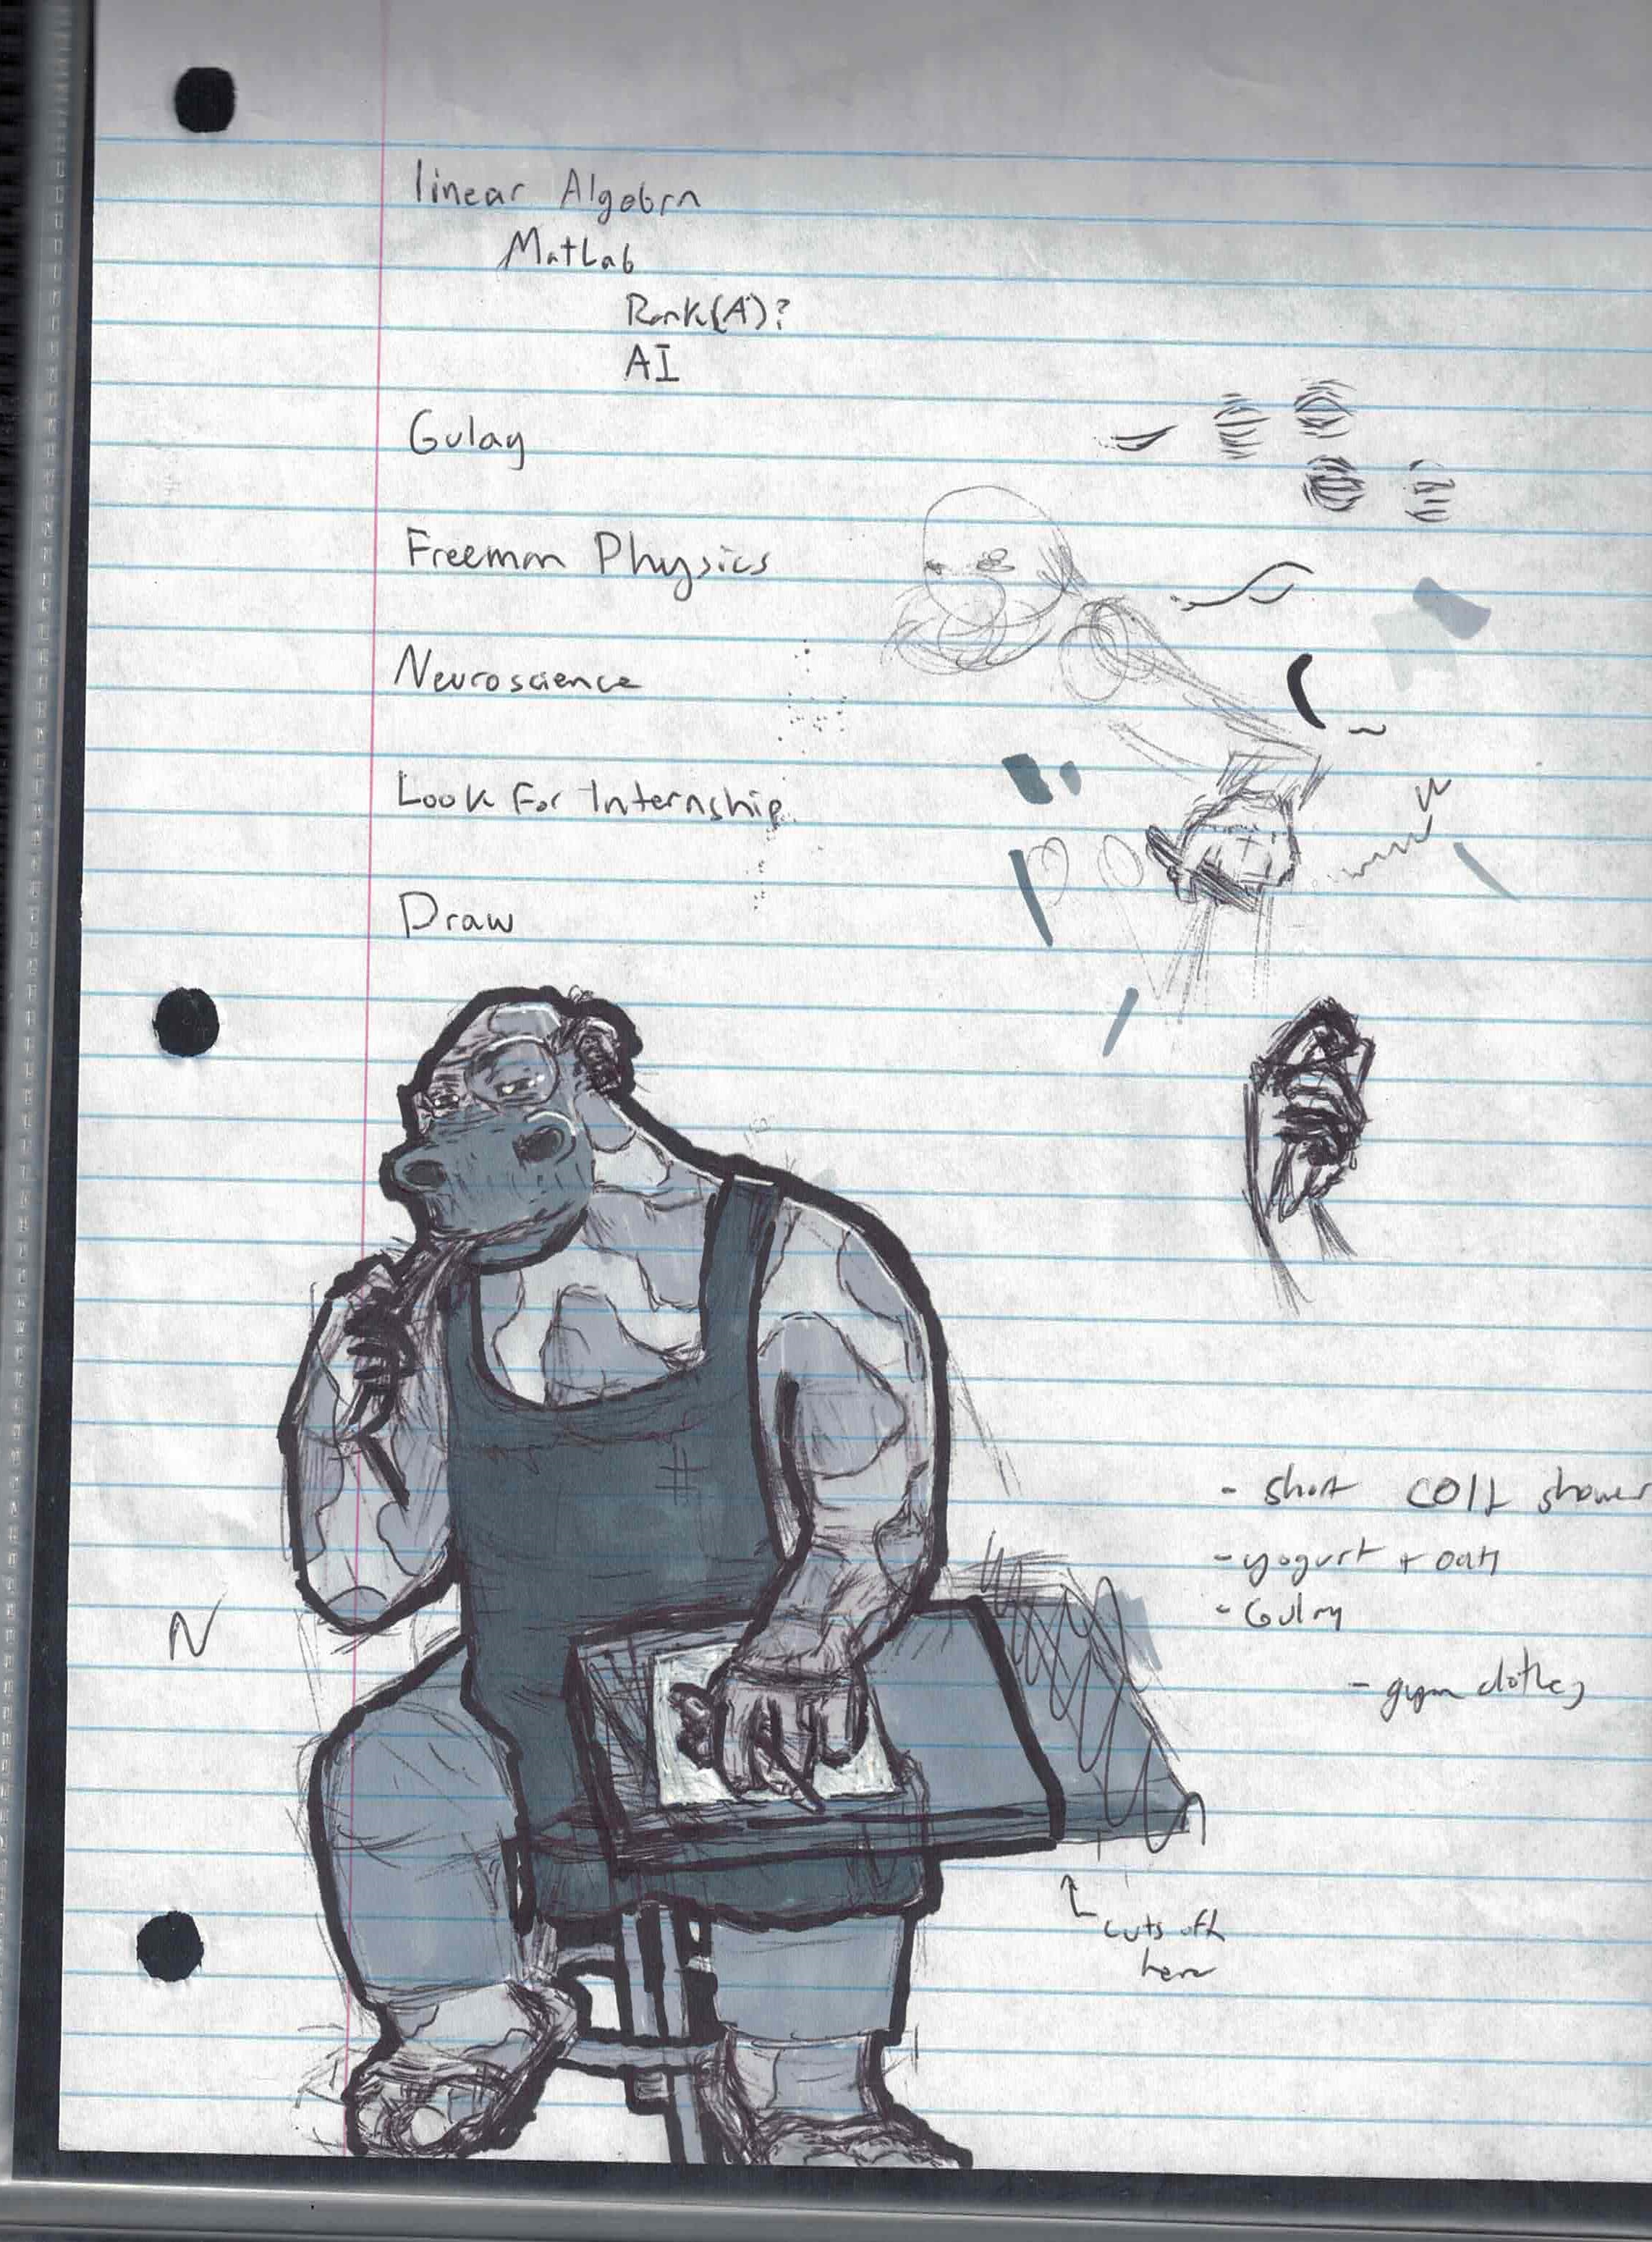 linear Algebra
MatLab
Rank(A)?
AI
Gulay
Freeman Physics
Neuroscience
Look For Internship
Draw
- short cold shower
- yogurt + oats
- Gulay
- gym clothes
N
cuts off
here